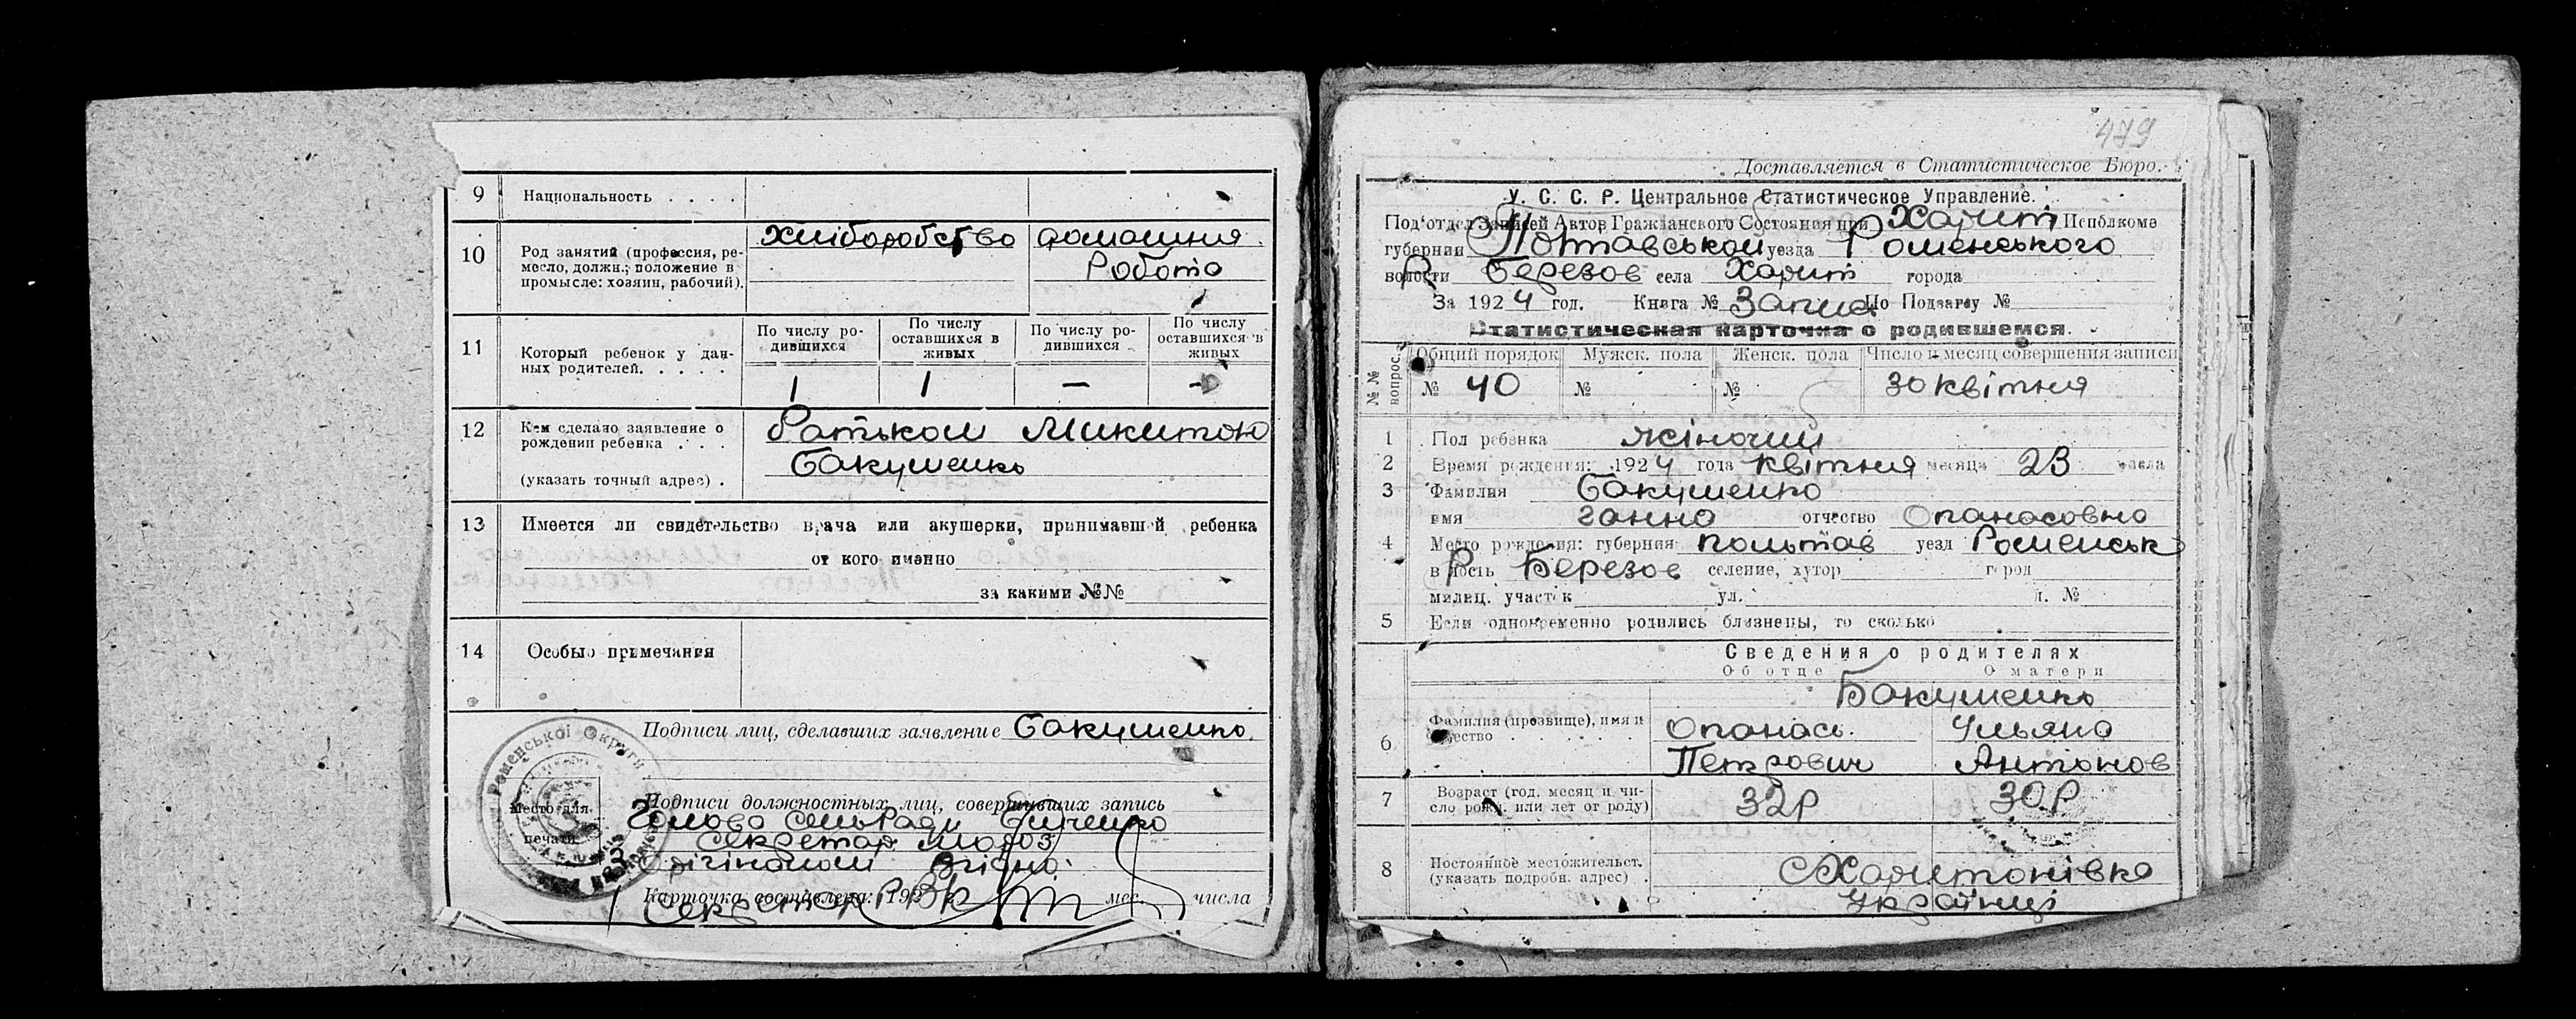 9 Национальность . . . .
10 Род занятий (профессия, ре-
месло, должн.; положение в
промысле: хозяин, рабочий).
Хліборобство домашня
Робота
11 Который ребенок у дан-
ных родителей. . . . .
По числу ро-
дившихся
По числу
оставшихся в
живых
По числу ро-
дившихся
По числу
оставшихся в
живых
1 1 — —
12 Кем сделано заявление о
рождении ребенка . . .
(указать точный адрес) .
Батьком Микитою
Бакуменко
13 Имеется ли свидетельство врача или акушерки, принимавшей ребенка
от кого именно
за какими №№
14 Особые примечания
Подписи лиц, сделавших заявление Бакуменко
Роменської Округи
Место для
печати
Подписи должностных лиц, совершивших запись
Голова сільради
Секретар Мороз
З орігіналом Згідно:
Карточка составлена: 192 мес. числа
Секретар
479
Доставляется в Статистическое Бюро.
У. С. С. Р. Центральное Статистическое Управление.
Под'отдел Записей Актов Гражданского Состояния при Харит Исполкоме
губернии Полтавської уезда Роменського
волости Березов села Харит города
За 1924 год. Книга № Запис По Подзагсу №
Статистическая карточка о родившемся.
№№ вопрос.
Общий порядок Мужск. пола Женск. пола Число и месяц совершения записи
№ 40 № № 30 квітня
1 Пол ребенка жіночий
2 Время рождения: 1924 года квітня месяца 23 числа
3 Фамилия Бакуменко
имя Ганна отчество Опанасовна
4 Место рождения: губерния Польтав уезд Роменськ
волость Березов селение, хутор город
милиц. участок ул. д. №
5 Если одновременно родились близнецы, то сколько
Сведения о родителях
Об отце О матери
Бакуменко
6 Фамилия (прозвище), имя и
отчество . . . . . . .
Опанась Ульяна
Петрович Антонов
7 Возраст (год, месяц и чи-
сло рожд. или лет от роду)
32р 30р
8 Постоянное местожительст.
(указать подробн. адрес) .
С Харитонівка
Українці